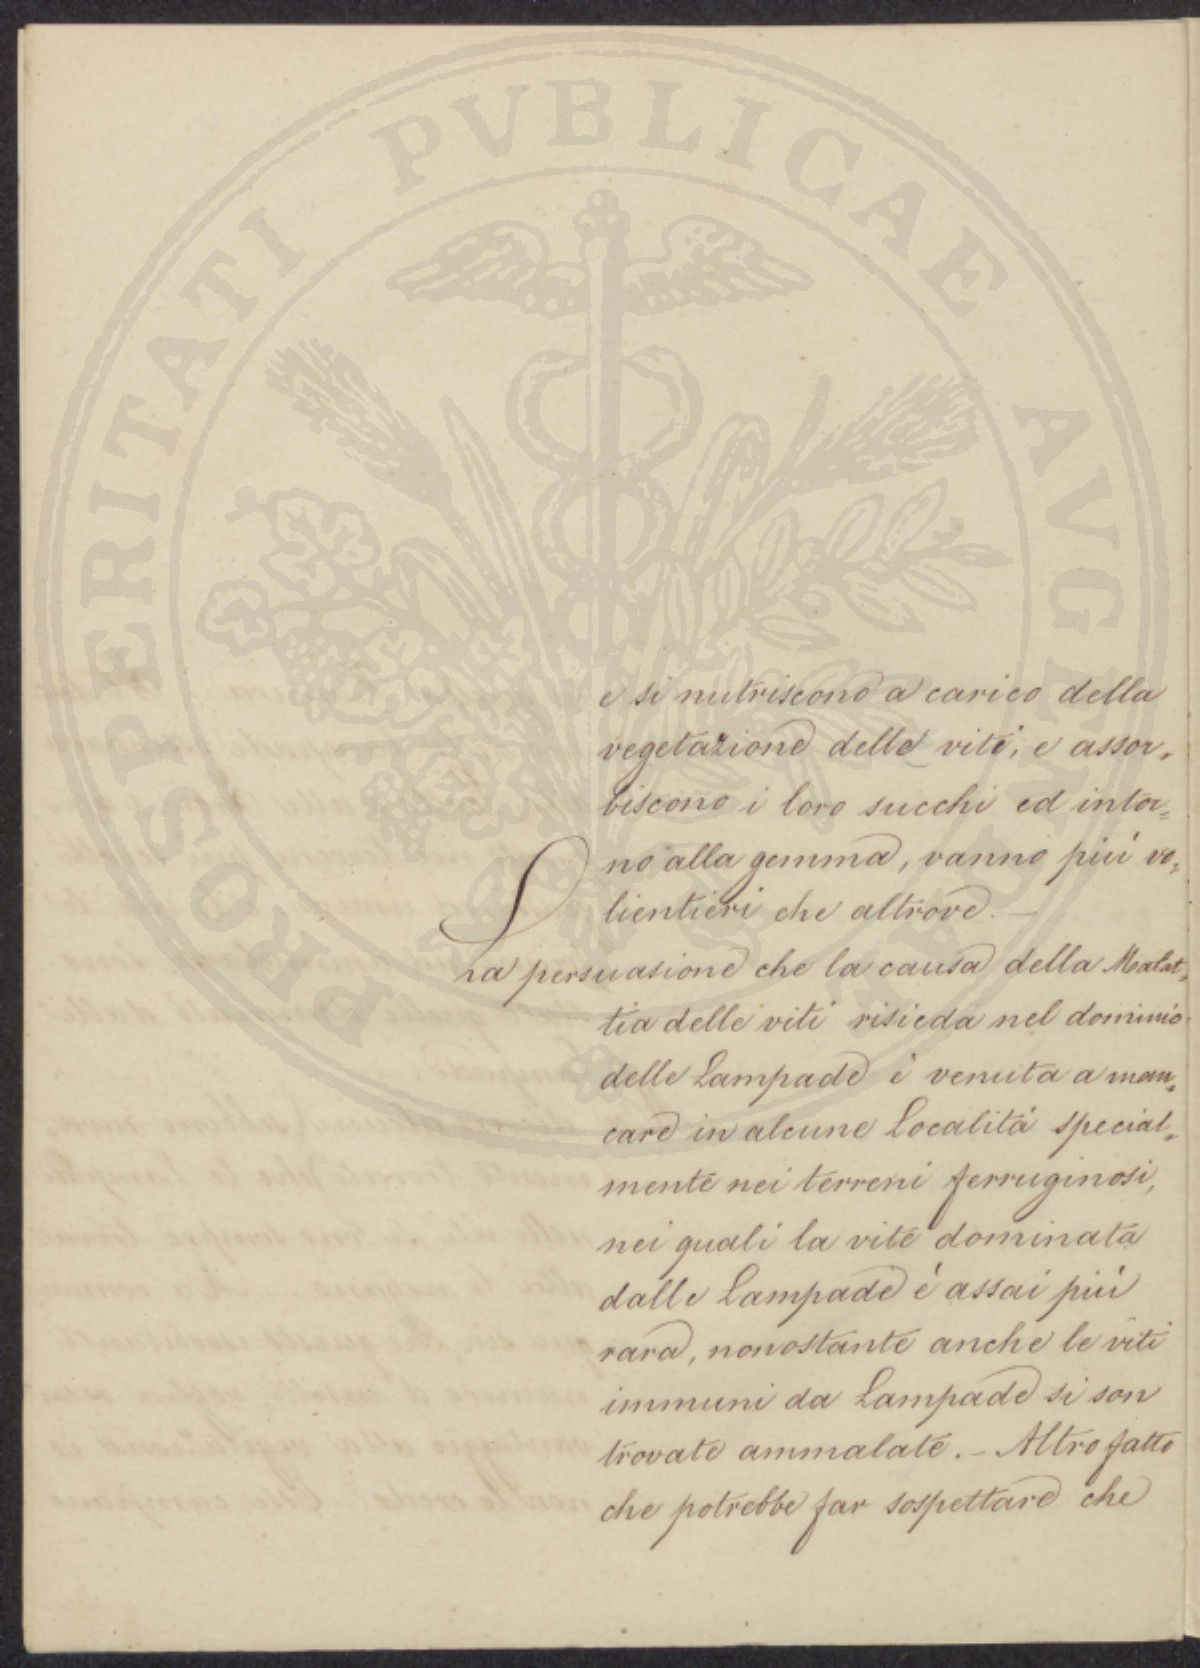 PROSPERITATI PVBLICAE AVGENDAE
e si nutriscono a carico della
vegetazione delle viti, e assor„
biscono i loro succhi ed intor=
no alla gemma, vanno più vo„
lientieri che altrove. —
La persuasione che la causa della Malat„
tia delle viti risieda nel dominio
delle Lampade è venuta a man„
care in alcune Località special„
mente nei terreni ferruginosi,
nei quali la vite dominata
dalle Lampade è assai più
rara, nonostante anche le viti
immuni da Lampade si son
trovate ammalate. – Altro fatto
che potrebbe far sospettare che